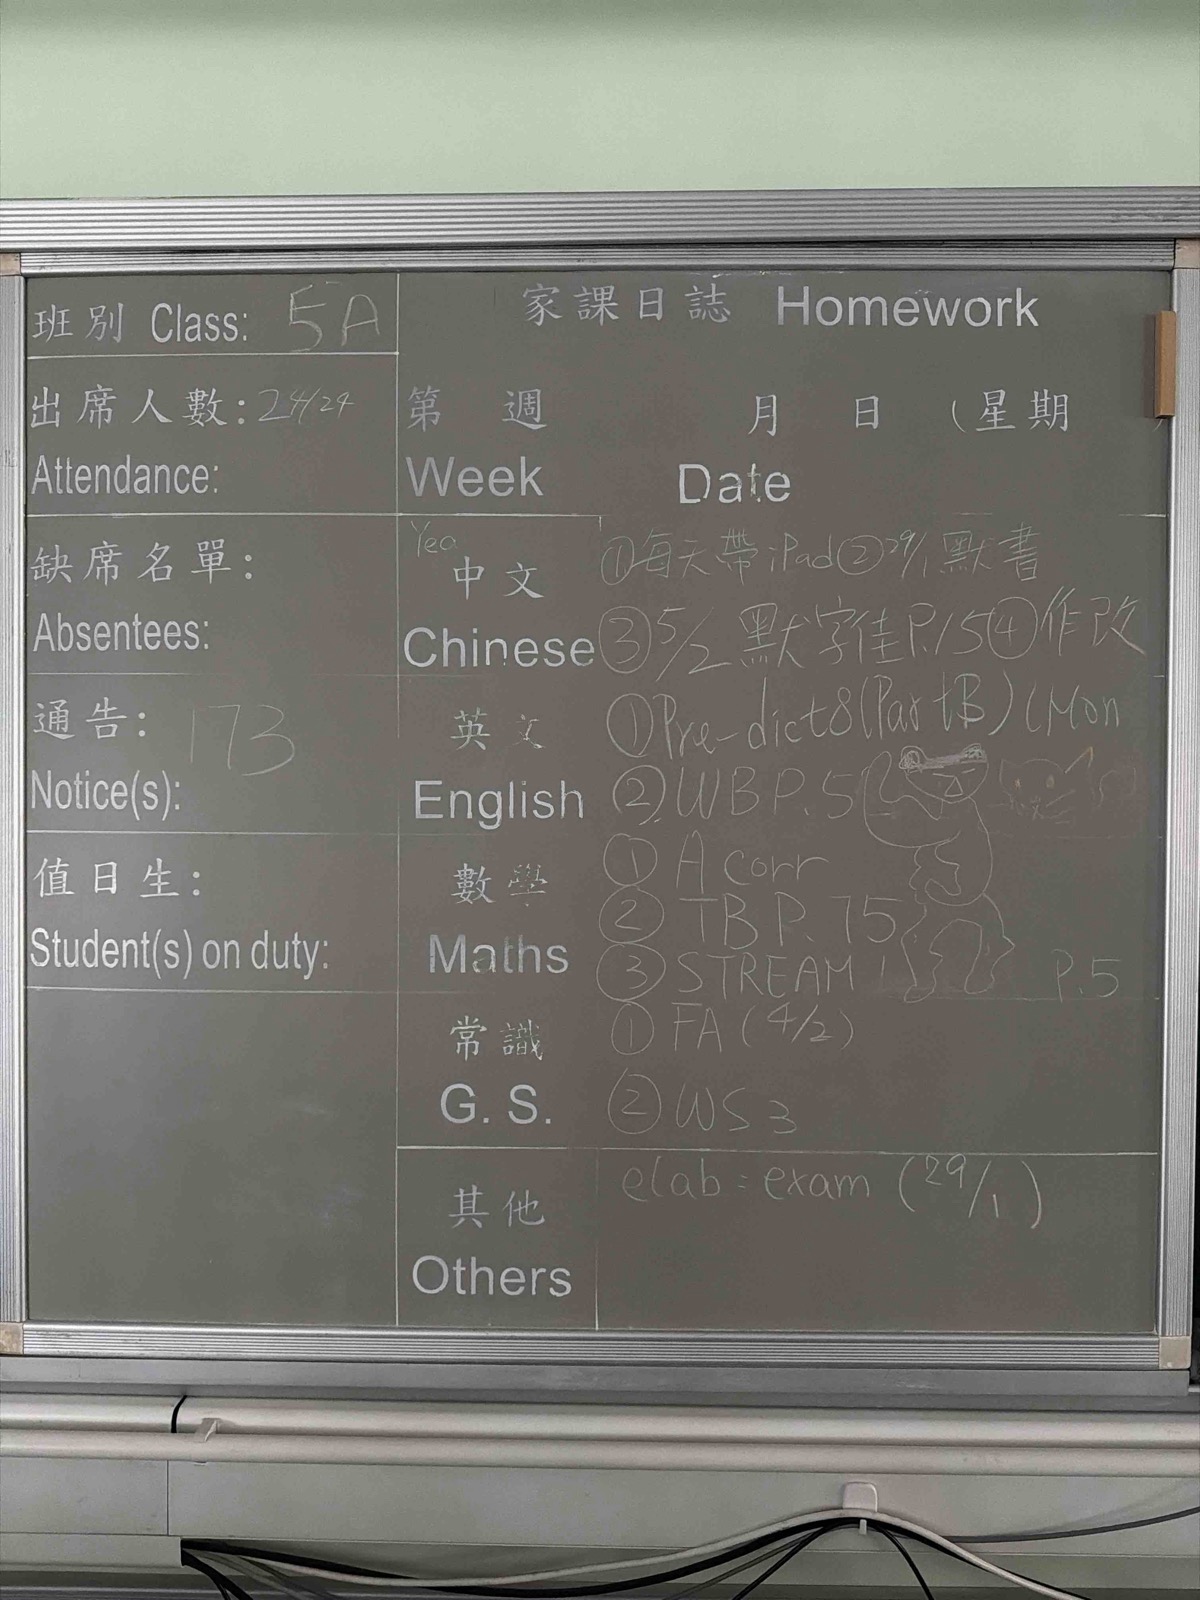 班別 Class: 5A
出席人數: 24/24
Attendance:
缺席名單:
Absentees:
通告: 173
Notice(s):
值日生:
Student(s) on duty:
家課日誌 Homework
第 週 月 日 (星期
Week Date
Yea
中文 ①每天帶iPad②29/1默書
Chinese ③5/2 默字佳P.15④作改
英文 ①Pre-dict8(PartB)(Mon
English ②WBP.5
數學 ①A corr
②TBP.75
Maths ③STREAM P.5
常識 ①FA(4/2)
G. S. ②WS3
其他 elab:exam (29/1)
Others